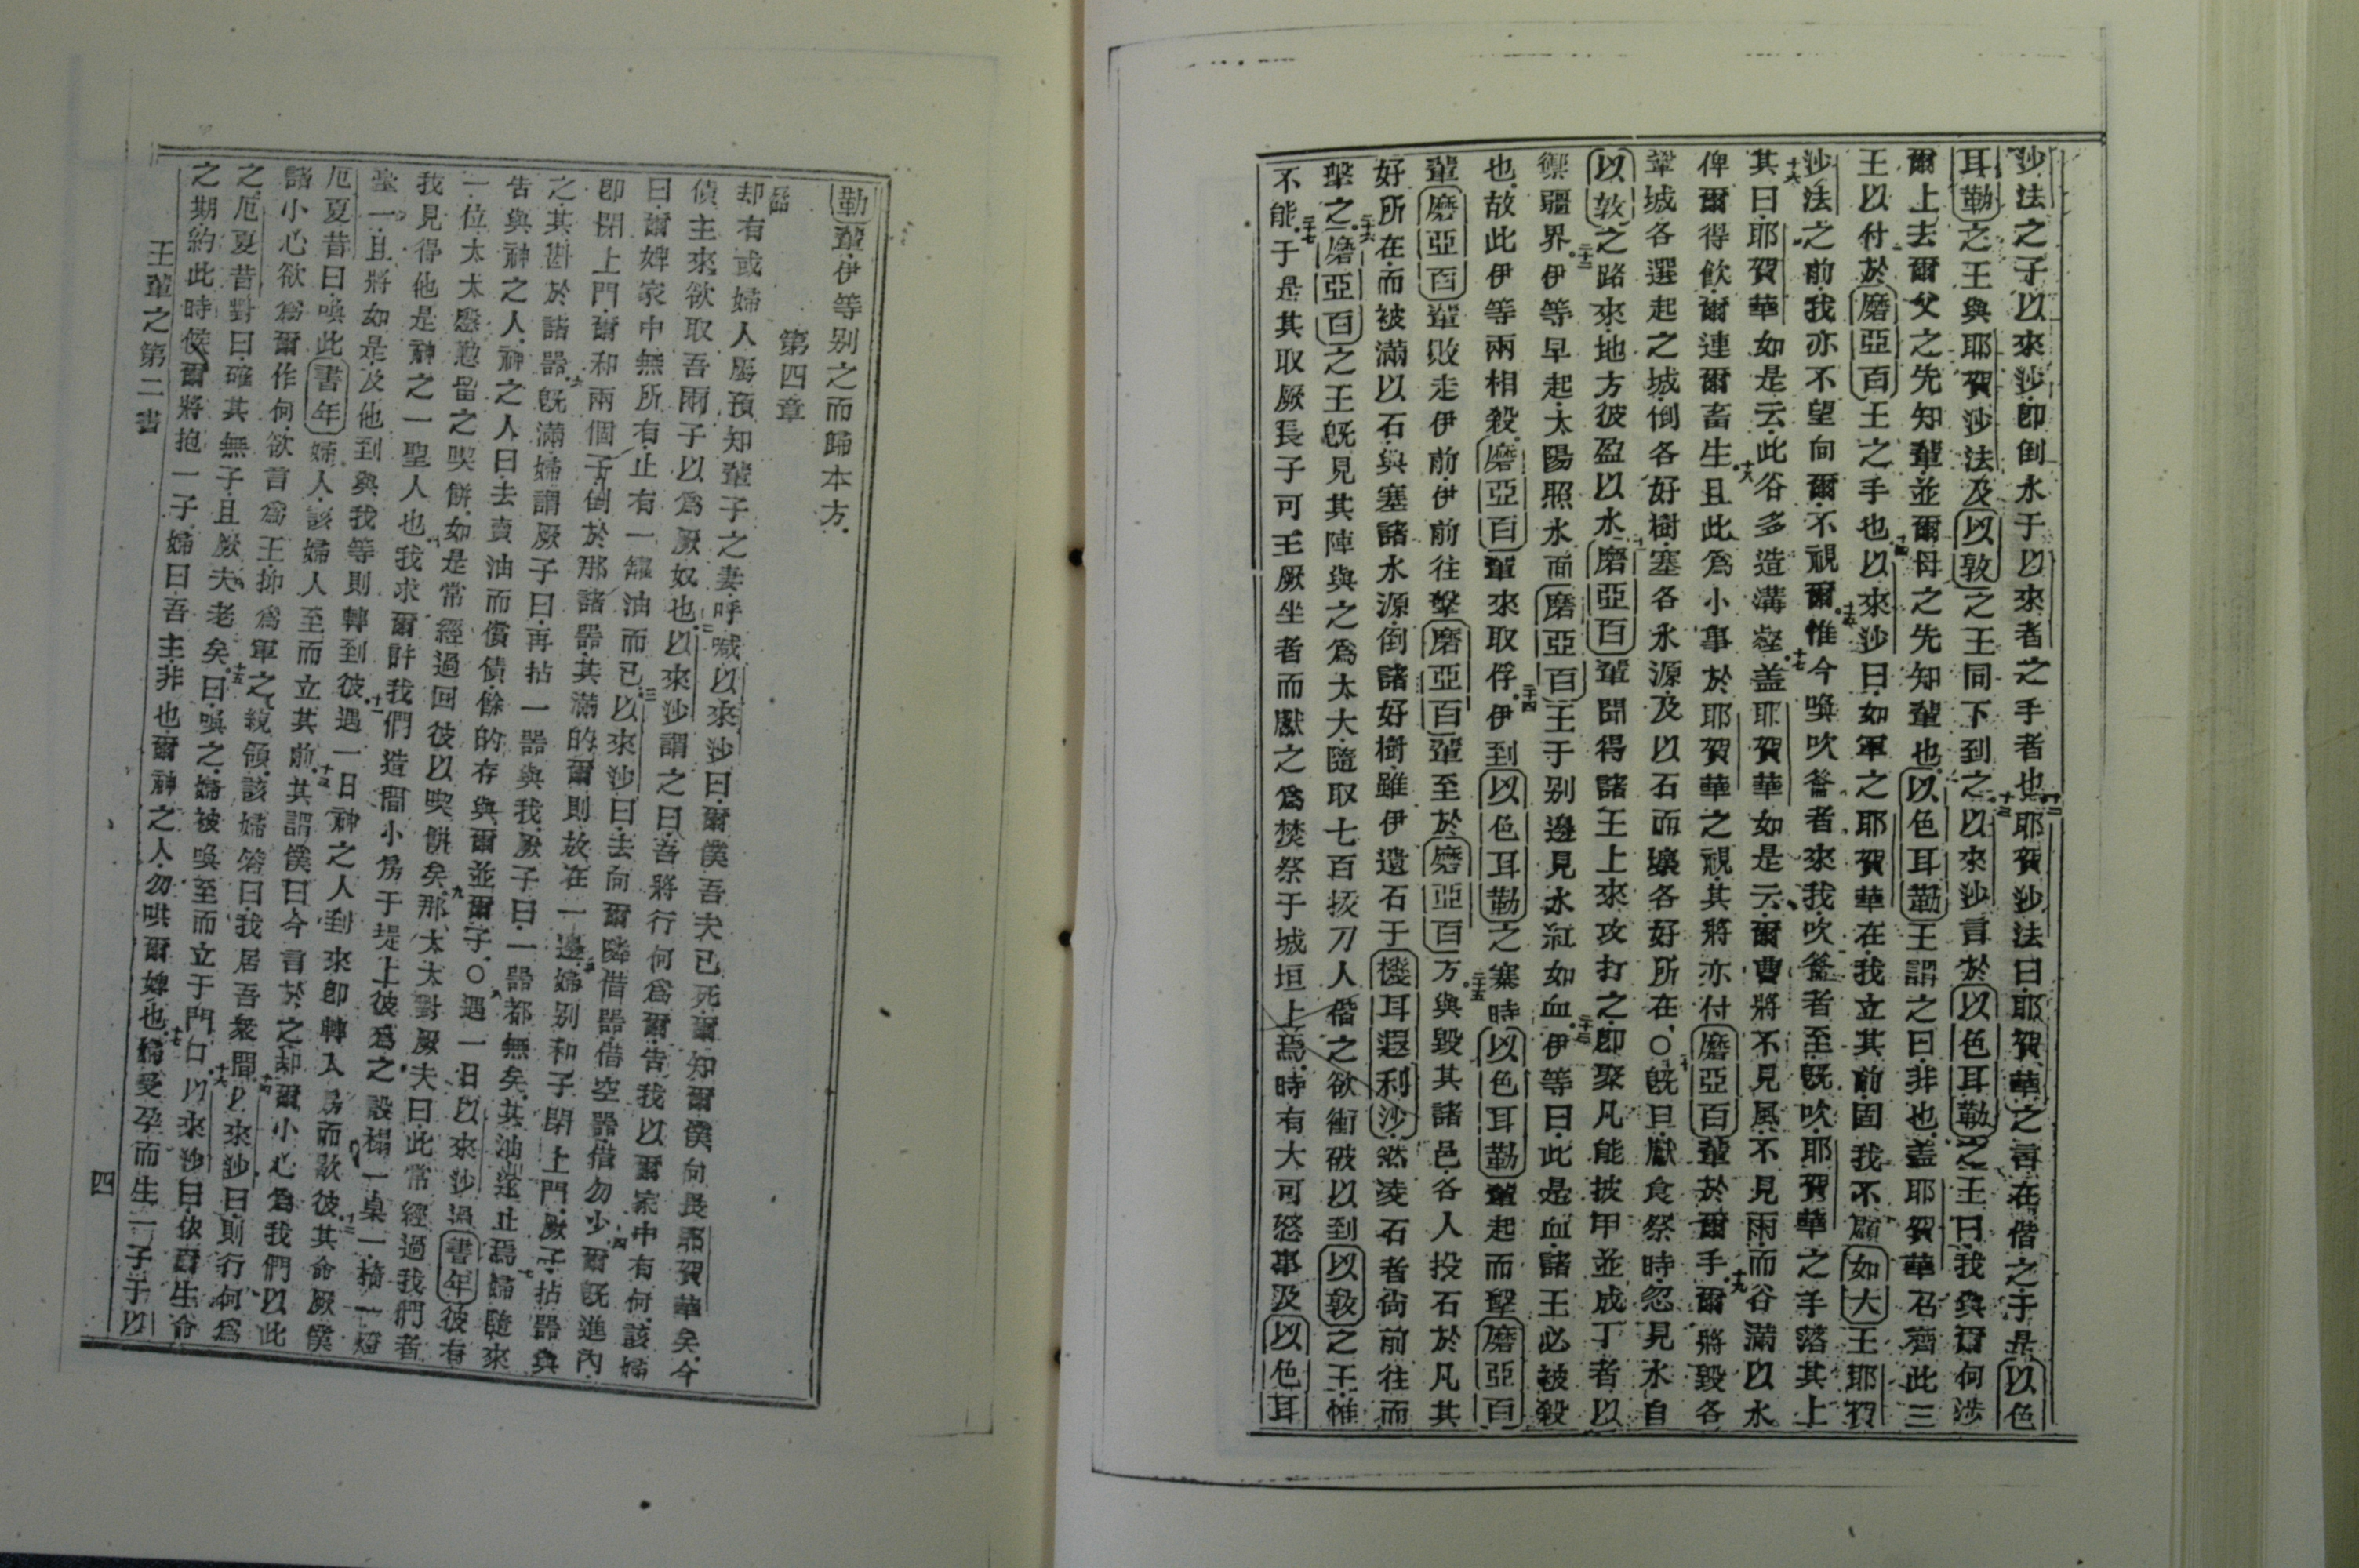 沙法之子以來沙卽倒水于以來者之手者也十二耶賀沙法曰耶賀華之言在偕之于是以色
耳勒之王與耶賀沙法及以敦之王同下到之十三以來沙言於以色耳勒之王曰我與爾何涉
爾上去爾父之先知輩並爾母之先知輩也以色耳勒王謂之曰非也蓋耶賀華召齊此三
王以付於磨亞百王之手也十四以來沙曰如軍之耶賀華在我立其前固我不顧如大王耶賀
沙法之前我亦不望向爾不視爾十五惟今喚吹簥者來我吹簥者至旣吹耶賀華之手落其上
十六其曰耶賀華如是云此谷多造溝壑十七蓋耶賀華如是云爾曹將不見風不見雨而谷滿以水
俾爾得飲爾連爾畜生十八且此爲小事於耶賀華之視其將亦付磨亞百輩於爾手十九爾將毀各
鞏城各選起之城倒各好樹塞各水源及以石而壞各好所在〇二十旣旦獻食祭時忽見水自
以敦之路來地方彼盈以水二十一磨亞百輩聞得諸王上來攻打之卽聚凡能披甲並成丁者以
禦疆界二十二伊等早起太陽照水面磨亞百王于別邊見水紅如血二十三伊等曰此是血諸王必被殺
也故此伊等兩相殺磨亞百輩來取俘二十四伊到以色耳勒之寨時以色耳勒輩起而擊磨亞百
輩磨亞百輩敗走伊前伊前往擊磨亞百輩至於磨亞百方二十五與毀其諸邑各人投石於凡其
好所在而被滿以石與塞諸水源倒諸好樹雖伊遺石于機耳遐利沙然凌石者尙前往而
擊之二十六磨亞百之王旣見其陣與之爲太大隨取七百拔刀人偕之欲衝破以到以敦之王惟
不能二十七于是其取厥長子可王厥坐者而獻之爲焚祭于城垣上焉時有大可怒事及以色耳
勒輩伊等別之而歸本方
第四章
一節却有或婦人屬預知輩子之妻呼喊以來沙曰爾僕吾夫已死爾知爾僕向畏耶賀華矣今
債主來欲取吾兩子以爲厥奴也二以來沙謂之曰吾將行何爲爾告我以爾家中有何該婦
曰爾婢家中無所有止有一罐油而已三以來沙曰去向爾隣借器借空器借勿少四爾旣進內
卽閉上門爾和兩個子倒於那諸器其滿的爾則放在一邊五婦別和子閉上門厥子拈器與
之其斟於諸器六旣滿婦謂厥子曰再拈一器與我厥子曰一器都無矣其油遂止焉七婦隨來
告與神之人神之人曰去賣油而償債餘的存與爾並爾子〇八遇一日以來沙過書年彼有
一位太太慇懃留之喫餅如是常經過回彼以喫餅矣九那太太對厥夫曰此常經過我們者
我見得他是神之一聖人也十我求爾許我們造間小房于堤上彼爲之設榻一桌一椅一燈
臺一且將如是及他到與我等則轉到彼十一遇一日神之人到來卽轉入房而歇彼十二其命厥僕
厄夏昔曰喚此書年婦人該婦人至而立其前十三其謂僕曰今言於之却爾小心爲我們以此
諸小心欲爲爾作何欲言爲王抑爲軍之統領該婦答曰我居吾衆間十四以來沙曰則行何爲
之厄夏昔對曰確其無子且厥夫老矣十五曰喚之婦被喚至而立于門口十六以來沙曰依爾生命
之期約此時候爾將抱一子婦曰吾主非也爾神之人勿哄爾婢也十七婦受孕而生一子于以
王輩之第二書
四